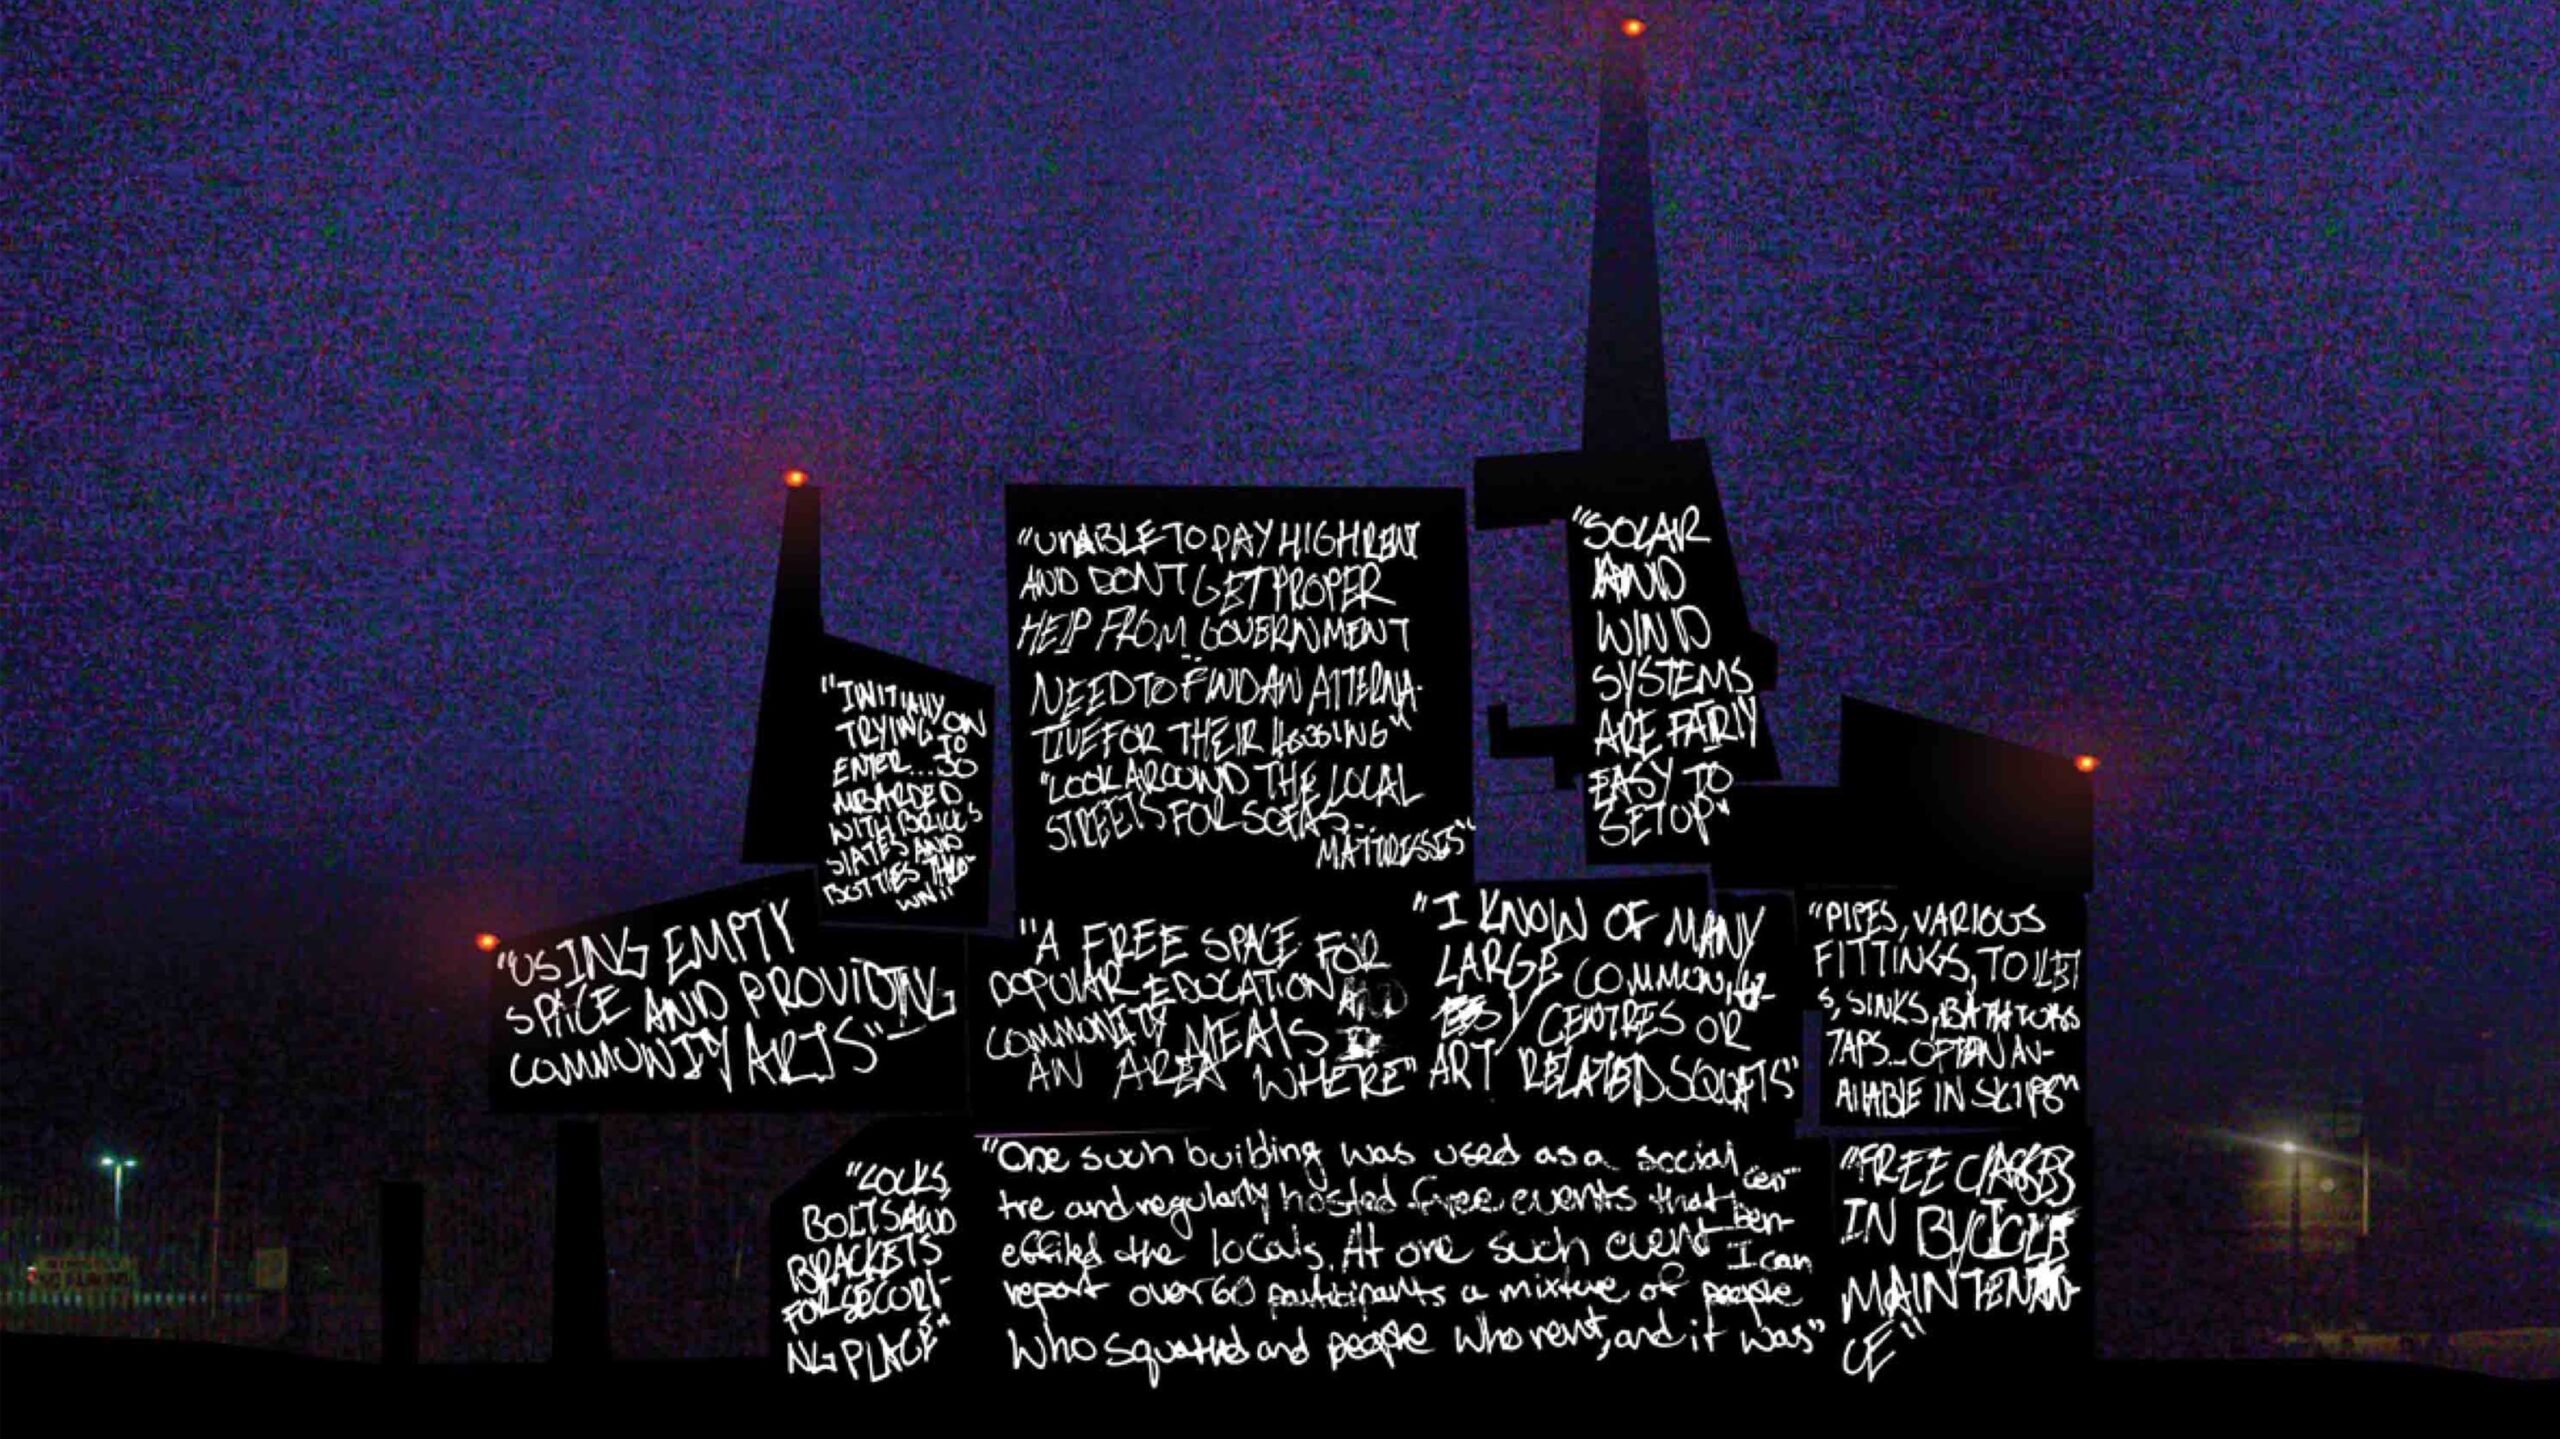 "UNABLE TO PAY HIGH RENT
AND DONT GET PROPER
HELP FROM GOVERNMENT
NEED TO FIND AN ATTERNA-
TIVE FOR THEIR HOUSING"
"LOOK AROUND THE LOCAL
STREETS FOR SOFAS...
MATTRESSES"
"SOLAR
AND
WIND
SYSTEMS
ARE FAIRLY
EASY TO
SETUP"
"INITIALLY ON
TRYING TO
ENTER...BO
MBARDED
WITH BRICKS
SLATES AND
BOTTLES THRO-
WN"
"USING EMPTY
SPACE AND PROVIDING
COMMUNITY ARTS"
"A FREE SPACE FOR
POPULAR EDUCATION AND
COMMUNITY MEALS IN
AN AREA WHERE"
"I KNOW OF MANY
LARGE COMMUNIT-
Y CENTRES OR
ART RELATED SQUATS"
"PIPES, VARIOUS
FITTINGS, TOILET
S, SINKS, BATHTUBS
TAPS...OFTEN AV-
AILABLE IN SKIPS"
"LOCKS,
BOLTS AND
BRACKETS
FOR SECURI-
NG PLACE"
"One such building was used as a social cen-
tre and regularly hosted free events that ben-
efited the locals. At one such event I can
report over 60 participants a mixture of people
who squatted and people who rent, and it was"
"FREE CLASSES
IN BYCICLE
MAINTENAN-
CE"